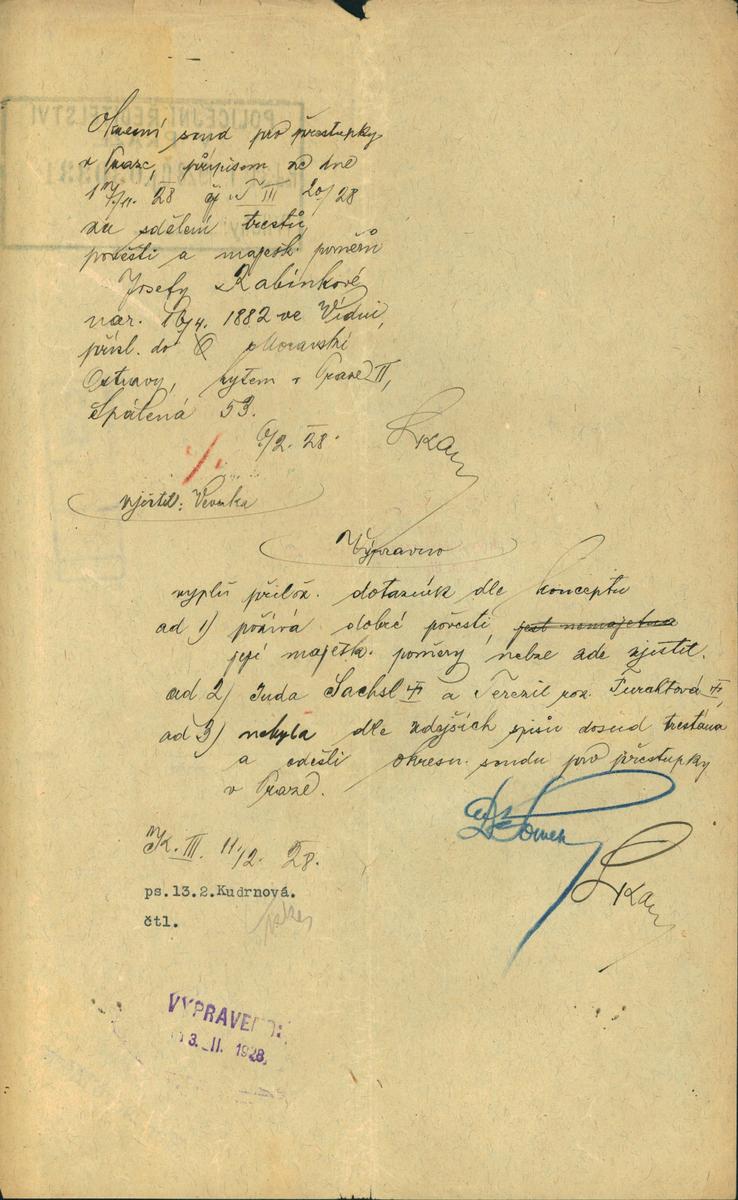 Okresní soud pro přestupky
v Praze, přípisem ze dne
28 čj T III 20/28
za sdělení trestů,
pověsti a majetk. poměrů
Josefy Rabínkové
nar. 16/4. 1882 ve Vídni,
přísl. do Moravské
Ostravy, bytem v Praze II,
Spálená 53.
6/2. 28.
zjistit:
Výpravno
vyplň přilož. dotazník dle konceptu
ad 1) požívá dobré pověsti, jest nemajetna
její majetk. poměry nelze zde zjistit.
ad 2) Juda Sachsl a Terezie roz. Furchtová
ad 3) nebyla dle zdejších spisů dosud trestána
a odešli okresn. soudu pro přestupky
v Praze.
III. 11/2. 28.
ps.13.2.Kudrnová.
čtl.
VYPRAVENO:
13. II. 1928
POLICEJNÍ ŘEDITELSTVÍ